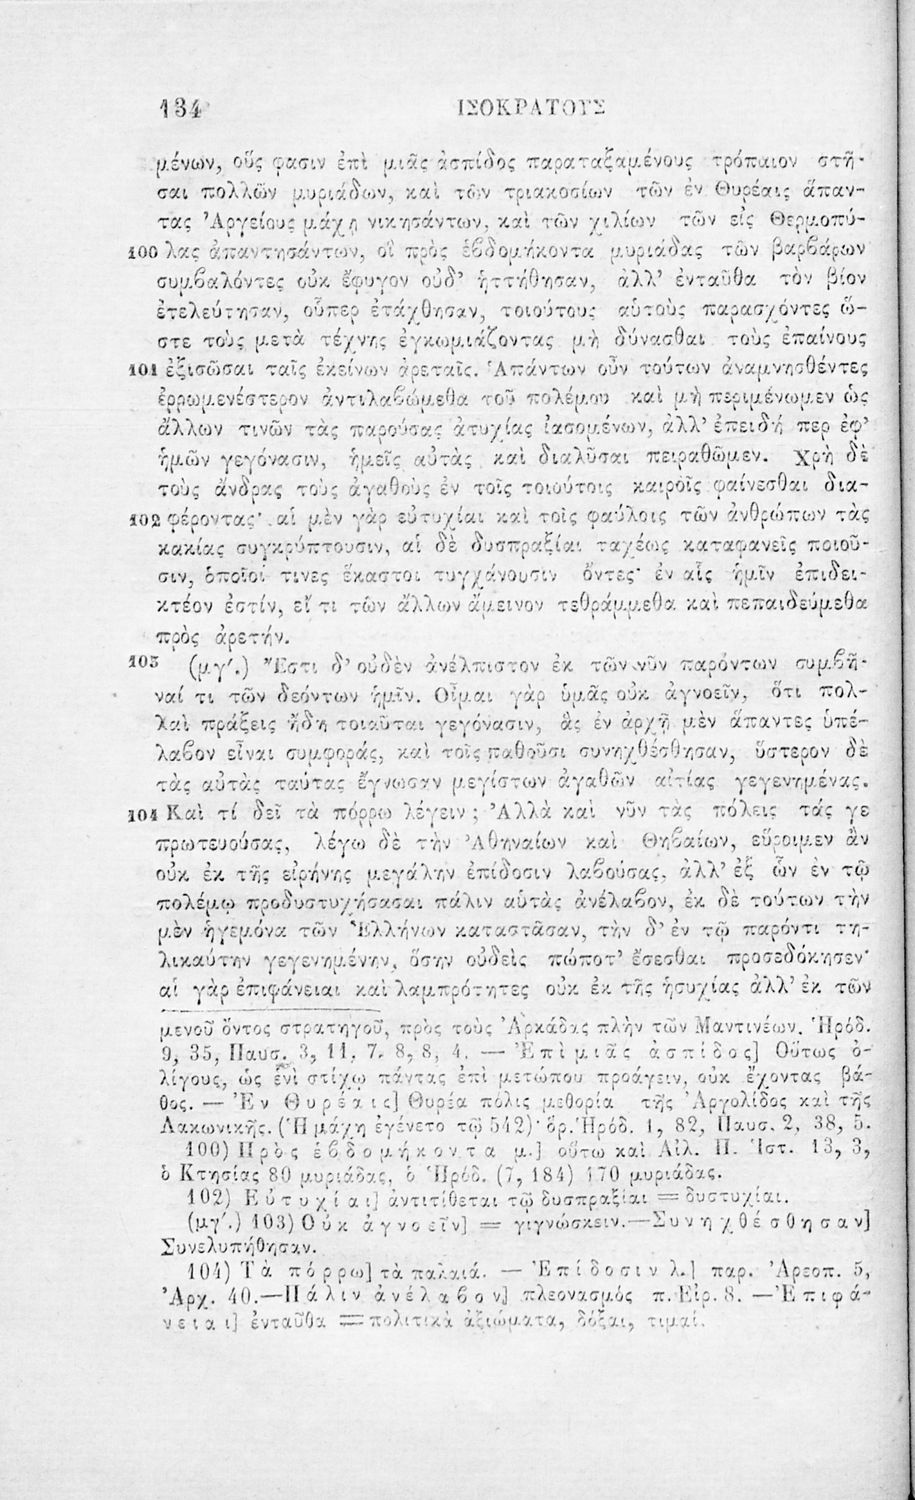 134 ΙΣΟΚΡΑΤΟΥΣ
μένων, οὕς φασιν ἐπὶ μιᾶς ἀσπίδος παραταξαμένους τρόπαιον στῆ-
σαι πολλῶν μυριάδων, καὶ τῶν τριακοσίων τῶν ἐν Θυρέαις ἅπαν-
τας Ἀργείους μάχῃ νικησάντων, καὶ τῶν χιλίων τῶν εἰς Θερμοπύ-
100 λας ἀπαντησάντων, οἳ πρὸς ἑβδομήκοντα μυριάδας τῶν βαρβάρων
συμβαλόντες οὐκ ἔφυγον οὐδ' ἡττήθησαν, ἀλλ' ἐνταῦθα τὸν βίον
ἐτελεύτησαν, οὗπερ ἐτάχθησαν, τοιούτους αὑτοὺς παρασχόντες ὥ-
στε τοὺς μετὰ τέχνης ἐγκωμιάζοντας μὴ δύνασθαι τοὺς ἐπαίνους
101 ἐξισῶσαι ταῖς ἐκείνων ἀρεταῖς. Ἁπάντων οὖν τούτων ἀναμνησθέντες
ἐρρωμενέστερον ἀντιλαβώμεθα τοῦ πολέμου καὶ μὴ περιμένωμεν ὡς
ἄλλων τινῶν τὰς παρούσας ἀτυχίας ἰασομένων, ἀλλ' ἐπειδή περ ἐφ'
ἡμῶν γεγόνασιν, ἡμεῖς αὐτὰς καὶ διαλῦσαι πειραθῶμεν. Χρὴ δὲ
τοὺς ἄνδρας τοὺς ἀγαθοὺς ἐν τοῖς τοιούτοις καιροῖς φαίνεσθαι δια-
102 φέροντας· αἱ μὲν γὰρ εὐτυχίαι καὶ τοῖς φαύλοις τῶν ἀνθρώπων τὰς
κακίας συγκρύπτουσιν, αἱ δὲ δυσπραξίαι ταχέως καταφανεῖς ποιοῦ-
σιν, ὁποῖοί τινες ἕκαστοι τυγχάνουσιν ὄντες· ἐν αἷς ἡμῖν ἐπιδει-
κτέον ἐστίν, εἴ τι τῶν ἄλλων ἄμεινον τεθράμμεθα καὶ πεπαιδεύμεθα
πρὸς ἀρετήν.
103 (μγ'.) Ἔστι δ' οὐδὲν ἀνέλπιστον ἐκ τῶν νῦν παρόντων συμβῆ-
ναί τι τῶν δεόντων ἡμῖν. Οἶμαι γὰρ ὑμᾶς οὐκ ἀγνοεῖν, ὅτι πολ-
λαὶ πράξεις ἤδη τοιαῦται γεγόνασιν, ἃς ἐν ἀρχῇ μὲν ἅπαντες ὑπέ-
λαβον εἶναι συμφοράς, καὶ τοῖς παθοῦσι συνηχθέσθησαν, ὕστερον δὲ
τὰς αὐτὰς ταύτας ἔγνωσαν μεγίστων ἀγαθῶν αἰτίας γεγενημένας.
104 Καὶ τί δεῖ τὰ πόρρω λέγειν; Ἀλλὰ καὶ νῦν τὰς πόλεις τάς γε
πρωτευούσας, λέγω δὲ τὴν Ἀθηναίων καὶ Θηβαίων, εὕροιμεν ἂν
οὐκ ἐκ τῆς εἰρήνης μεγάλην ἐπίδοσιν λαβούσας, ἀλλ' ἐξ ὧν ἐν τῷ
πολέμῳ προδυστυχήσασαι πάλιν αὑτὰς ἀνέλαβον, ἐκ δὲ τούτων τὴν
μὲν ἡγεμόνα τῶν Ἑλλήνων καταστᾶσαν, τὴν δ' ἐν τῷ παρόντι τη-
λικαύτην γεγενημένην, ὅσην οὐδεὶς πώποτ' ἔσεσθαι προσεδόκησεν·
αἱ γὰρ ἐπιφάνειαι καὶ λαμπρότητες οὐκ ἐκ τῆς ἡσυχίας ἀλλ' ἐκ τῶν
μενοῦ ὄντος στρατηγοῦ, πρὸς τοὺς Ἀρκάδας πλὴν τῶν Μαντινέων. Ἡρόδ.
9, 35, Παυσ. 3, 11, 7. 8, 8, 4. — Ἐπὶ μιᾶς ἀσπίδος] Οὕτως ὀ-
λίγους, ὡς ἑνὶ στίχῳ πάντας ἐπὶ μετώπου προάγειν, οὐκ ἔχοντας βά-
θος. — Ἐν Θυρέαις] Θυρέα πόλις μεθορία τῆς Ἀργολίδος καὶ τῆς
Λακωνικῆς. (Ἡ μάχη ἐγένετο τῷ 542)· ὅρ. Ἡρόδ. 1, 82, Παυσ. 2, 38, 5.
100) Πρὸς ἑβδομήκοντα μ.] οὕτω καὶ Αἰλ. Π. Ἱστ. 13, 3,
ὁ Κτησίας 80 μυριάδας, ὁ Ἡρόδ. (7, 184) 170 μυριάδας.
102) Εὐτυχίαι] ἀντιτίθεται τῷ δυσπραξίαι = δυστυχίαι.
(μγ'.) 103) Οὐκ ἀγνοεῖν] = γιγνώσκειν. — Συνηχθέσθησαν]
Συνελυπήθησαν.
104) Τὰ πόρρω] τὰ παλαιά. — Ἐπίδοσιν λ.] παρ. Ἀρεοπ. 5,
Ἀρχ. 40. — Πάλιν ἀνέλαβον] πλεονασμός π. Εἰρ. 8. — Ἐπιφά-
νειαι] ἐνταῦθα = πολιτικὰ ἀξιώματα, δόξαι, τιμαί.